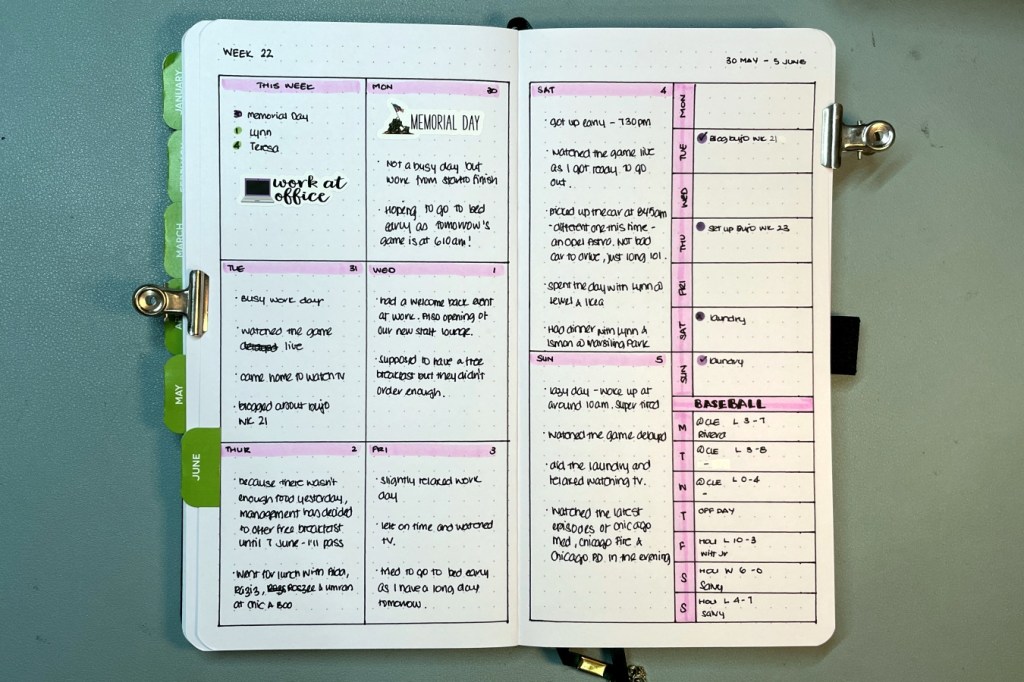 WEEK 22
THIS WEEK
30 Memorial Day
1 Lynn
4 Teresa
work at
office
MON 30
MEMORIAL DAY
• Not a busy day but
work from start to finish
• Hoping to go to bed
early as tomorrow's
game is at 610am!
TUE 31
• Busy work day
• watched the game
live
• came home to watch tv
• blogged about bujo
WK 21
WED 1
• had a welcome back event
at work. Also opening of
our new staff lounge.
• supposed to have a free
breakfast but they didn't
order enough.
THUR 2
• because there wasn't
enough food yesterday,
management has decided
to offer free breakfast
until 7 June - I'll pass
• Went for lunch with
Raziz, & Umran
at Chic A Boo
FRI 3
• slightly relaxed work
day
• left on time and watched
tv.
• tried to go to bed early
as I have a long day
tomorrow.
30 MAY - 5 JUNE
SAT 4
• got up early - 730pm
• watched the game live
as I got ready to go
out.
• picked up the car at 845am
- different one this time -
an Opel Astra. Not bad
car to drive, just long lol.
• spent the day with Lynn @
Jewel & Ikea
• Had dinner with Lynn &
Isman @ Marsiling Park
SUN 5
• lazy day - woke up at
around 10am. super tired
• watched the game delayed
• did the laundry and
relaxed watching tv.
• watched the latest
episodes of Chicago
Med, Chicago Fire &
Chicago PD in the evening
MON
TUE
Blog bujo WK 21
WED
THU
set up Bujo WK 23
FRI
SAT
laundry
SUN
laundry
BASEBALL
M @CLE L 3-7
Rivera
T @CLE L 3-8
-
W @CLE L 0-4
-
T OFF DAY
F HOU L 10-3
Witt Jr
S HOU W 6-0
Salvy
S HOU L 4-7
Salvy
JANUARY
MARCH
MAY
JUNE